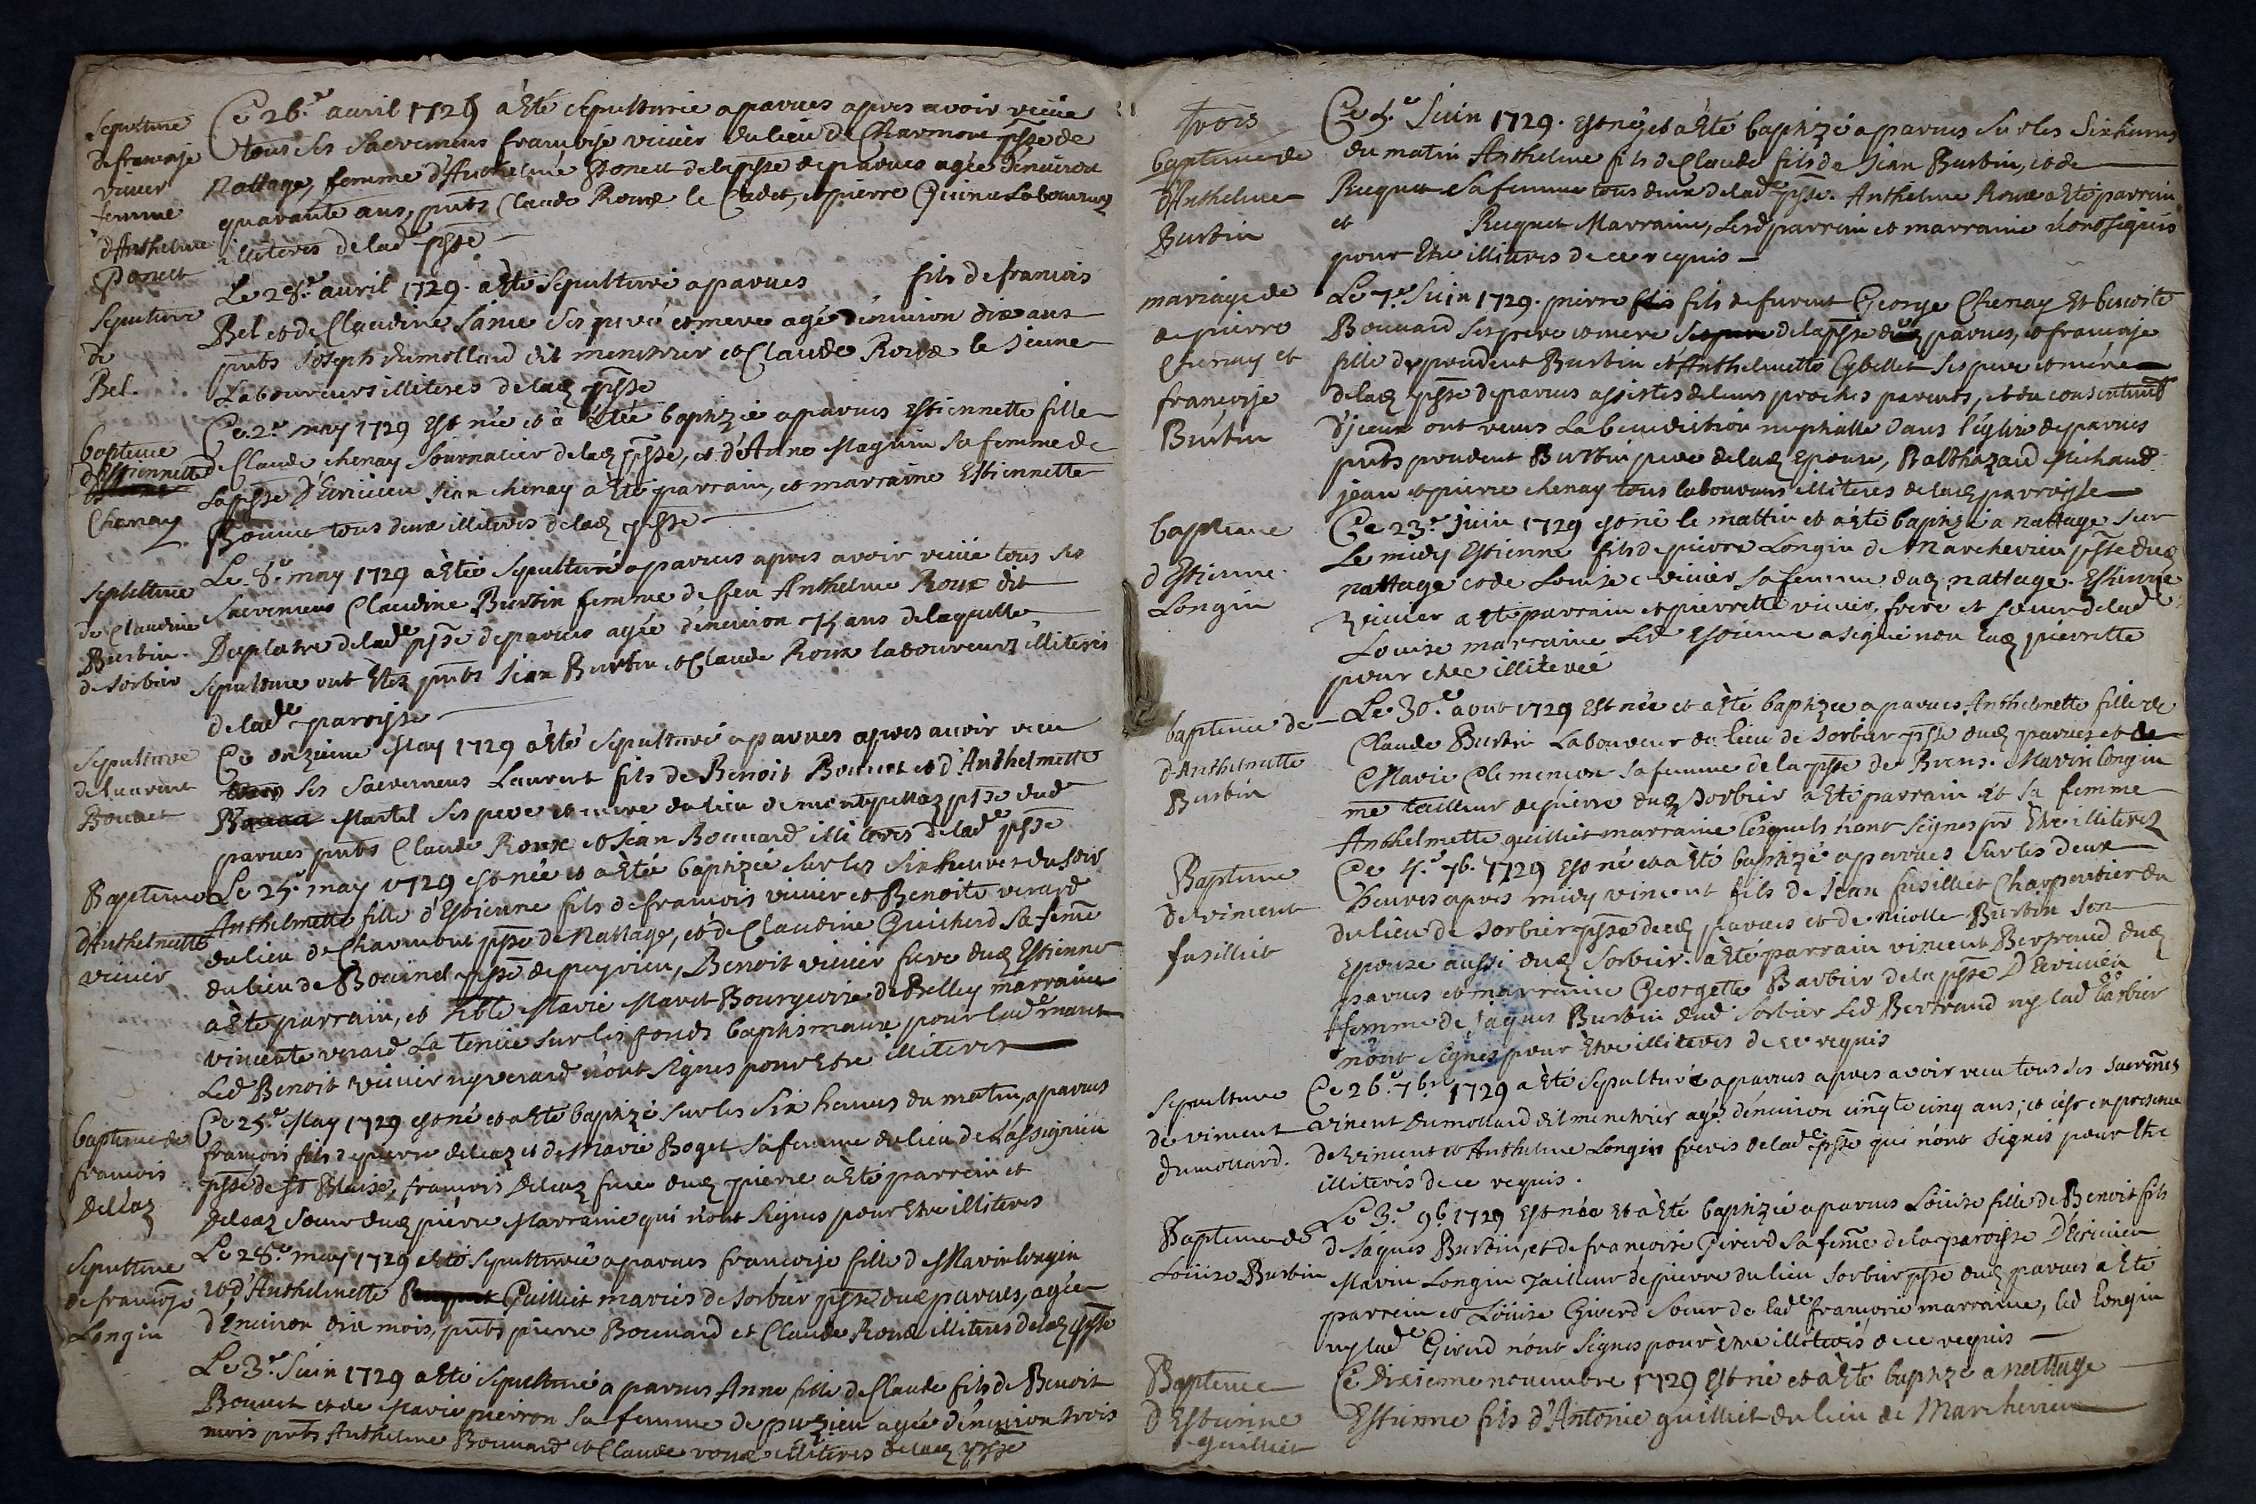 Sepulture
de francoise
vivier
femme
d'Anthelme
Ponett
Ce 26.e avril 1729 a Esté sepulturée a parves apres avoir reciie
tous ses sacremens francoise vivier du lieu de Charmont psse de
Nattage, femme d'Anthelme Ponett de la psse de parves agée d'environ
quarante ans, pnts Claude Roux le Cadet, et pierre Laboureurs
illiteres de lad.e psse
Sepulture
de
Bel.
Le 28.e avril 1729. a Esté Sepulturé a parves fils de francois
Bel et de Claudine Janie ses pere et mere agé d'environ dix ans
pnts Joseph dumollard dit menetrier et Claude Roux le Jeune
Laboureurs illiteres de lad psse
baptême
d'Estiennette
Chenay
Ce 2.e may 1729 Est née et a Estée baptizée a parves Estiennette fille
de Claude chenay Journalier de lad psse, et d'Anne Maguin sa femme de
la psse D'Evieieu Jean chenay a Esté parrain, et marraine Estiennette
Bonnet tous deux illiteres de lad psse
Sepulture
de Claudine
Burtin
de Sorbier
Le 8.e may 1729 a Esté Sepulturé a parves apres avoir reciie tous ses
Sacremens Claudine Burtin femme de feu Anthelme Roux dit
Duplatre de lad.e psse de parves agée d'environ 75 ans de laquelle
sepulture ont Estez pnts Jean Burtin et Claude Roux laboureurs illiteres
de lad.e paroisse
Sepulture
de Laurent
Bonnet
Ce onzieme May 1729 a Esté sepulturé a parves apres avoir receu
ses sacremens Laurent fils de Benoit Bonnet et d'Anthelmette
Martel ses pere et mere du lieu de montpellaz psse dud
parves pnts Claude Roux et Jean Bouvard illiteres de lad.e psse
Baptême
d'Anthelmette
vivier
Le 25.e may 1729 est née et a Esté baptizée sur les six heures du soir
Anthelmette fille d'Estienne fils de francois vivier et Benoite verard
du lieu de Charmont psse de Nattage, et de Claudine Guicherd sa feme
du lieu de Bouinel psse de peyrieu, Benoit vivier frere dud Estienne
a Esté parrain, et Marie Maret Bourgeoise de Belley marraine
vincente verard La tenüe sur les fonds baptismaux pour lad.e maret
Led Benoit vivier ny verard n'ont signes pour Etre illiteres
baptême de
francois
deleaz
Ce 25.e May 1729 est né et a Esté baptizé sur les six heures du matin, a parves
francois fils de pierre deleaz et de Marie Boget sa femme du lieu de Lassignieu
psse de St Blaise, francois deleaz frere dud pierre a Esté parrein et
deleaz soeur dud pierre Marraine qui n'ont signes pour Etre illiteres
Sepulture
de francoise
Longin
Le 28.e may 1729 a Esté Sepulturée a parves francoise fille de Marin longin
et d'Anthelmette Guilliet mariés de Sorbier psse dud parves, agée
d'Environ dix mois, pnts pierre Bouvard et Claude Roux illiteres de lad psse
Le 3.e Juin 1729 a Esté sepulturée a parves Anne fille de Claude fils de Benoit
Bonnet et de Marie pierron sa femme de puzieu agée d'environ trois
mois pnts Anthelme Bouvard et Claude roux illiteres de lad psse
Trois
baptême de
d'Anthelme
Burtin
Ce 5.e Juin 1729. est né, et a Esté baptizé a parves Sur les Six heures
du matin Anthelme fils de Claude fils de Jean Burtin, et de
Ruquet sa femme tous deux de lad.e psse. Anthelme Roux a Esté parrein
et Ruquet Marraine, Lesd parrein et marraine n'ont signés
pour Etre illiteres de ce requis
mariage de
de pierre
Chenay et
francoise
Burtin
Le 7.e Juin 1729. pierre fils de furent George Chenay Et benoite
Bouvard ses pere et mere de la psse dud parves, et francoise
fille de prudent Burtin et Anthelmette Cybellet ses pere et mére
de lad psse de parves assistés de leurs proches parents, et du consentemt
d'jceux ont receus La benediction nuptialle dans l'église de parves
pnts prudent Burtin pere de lad Epouse, Balthazard Michaud
jean et pierre chenay tous laboureurs illiteres de lad parroisse
baptême
d'Estienne
Longin
Ce 23.e juin 1729 est né le mattin et a Esté baptizé a nattage sur
Le midy Estienne fils de pierre Longin de Marchevieu psse dud
nattage et de Louise vivier sa femme dud nattage. Estienne
vivier a Esté parrain et pierrette vivier, frere et soeur de lad.e
Louise marraine Led Estienne a signé non lad pierrette
pour etre illiterée
baptême de
d'Anthelmette
Burtin
Le 30.e aout 1729 Est née et a Esté baptizée a parves Anthelmette fille de
Claude Burtin Laboureur du lieu de Sorbier psse dud parves et de
Marie Clemencon sa femme de la psse de Brens. Marin longin
me tailleur de pierre dud Sorbier a Esté parrain et sa femme
Anthelmette guilliet marraine Lesquels n'ont signes pr Etre illiteres
Baptême
de vincent
fusilliet
Ce 4.e 7b. 1729 Est né et a Esté baptizé a parves sur les deux
heures apres midy vincent fils de Jean fusilliet Charpentier du
du lieu de Sorbier psse dud parves et de niolle Burtin son
Epouse aussi dud Sorbier. a Esté parrain vincent Bertrand dud
parves et marraine Georgette Barbier de la psse D'Evieieu
femme de Jaques Burtin dud Sorbier Led Bertrand ny lad.e barbier
n'ont signés pour Etre illiteres de ce requis
Sepulture
de vincent
dumollard.
Ce 26.e 7br 1729 a Esté sepulturé a parves apres avoir receu tous ses sacrmes
vincent dumollard dit menetrier agé d'environ cinqte cinq ans; et c'est en presence
de vincent et Anthelme Longin freres de lad.e psse qui n'ont signés pour Etre
illiteres de ce requis.
Baptême de
Loüise Burtin
Le 3.e 9b. 1729 Est née et a Esté baptizée a parves Loüise fille de Benoit fils
de Jaques Burtin, et de francoise Girerd sa feme de la paroisse D'Evieieu
Marin Longin Tailleur de pierre du lieu Sorbier psse dud parves a Esté
parrein et Loüise Girerd soeur de lad.e francoise marraine, led longin
ny lad.e Girerd n'ont signes pour être illiteres de ce requis
Baptême
D'Estienne
guilliet
Ce Dixieme novembre 1729 Est né et a Esté baptizé a nattage
Estienne fils d'Antonie guilliet du lieu de Marchevieu